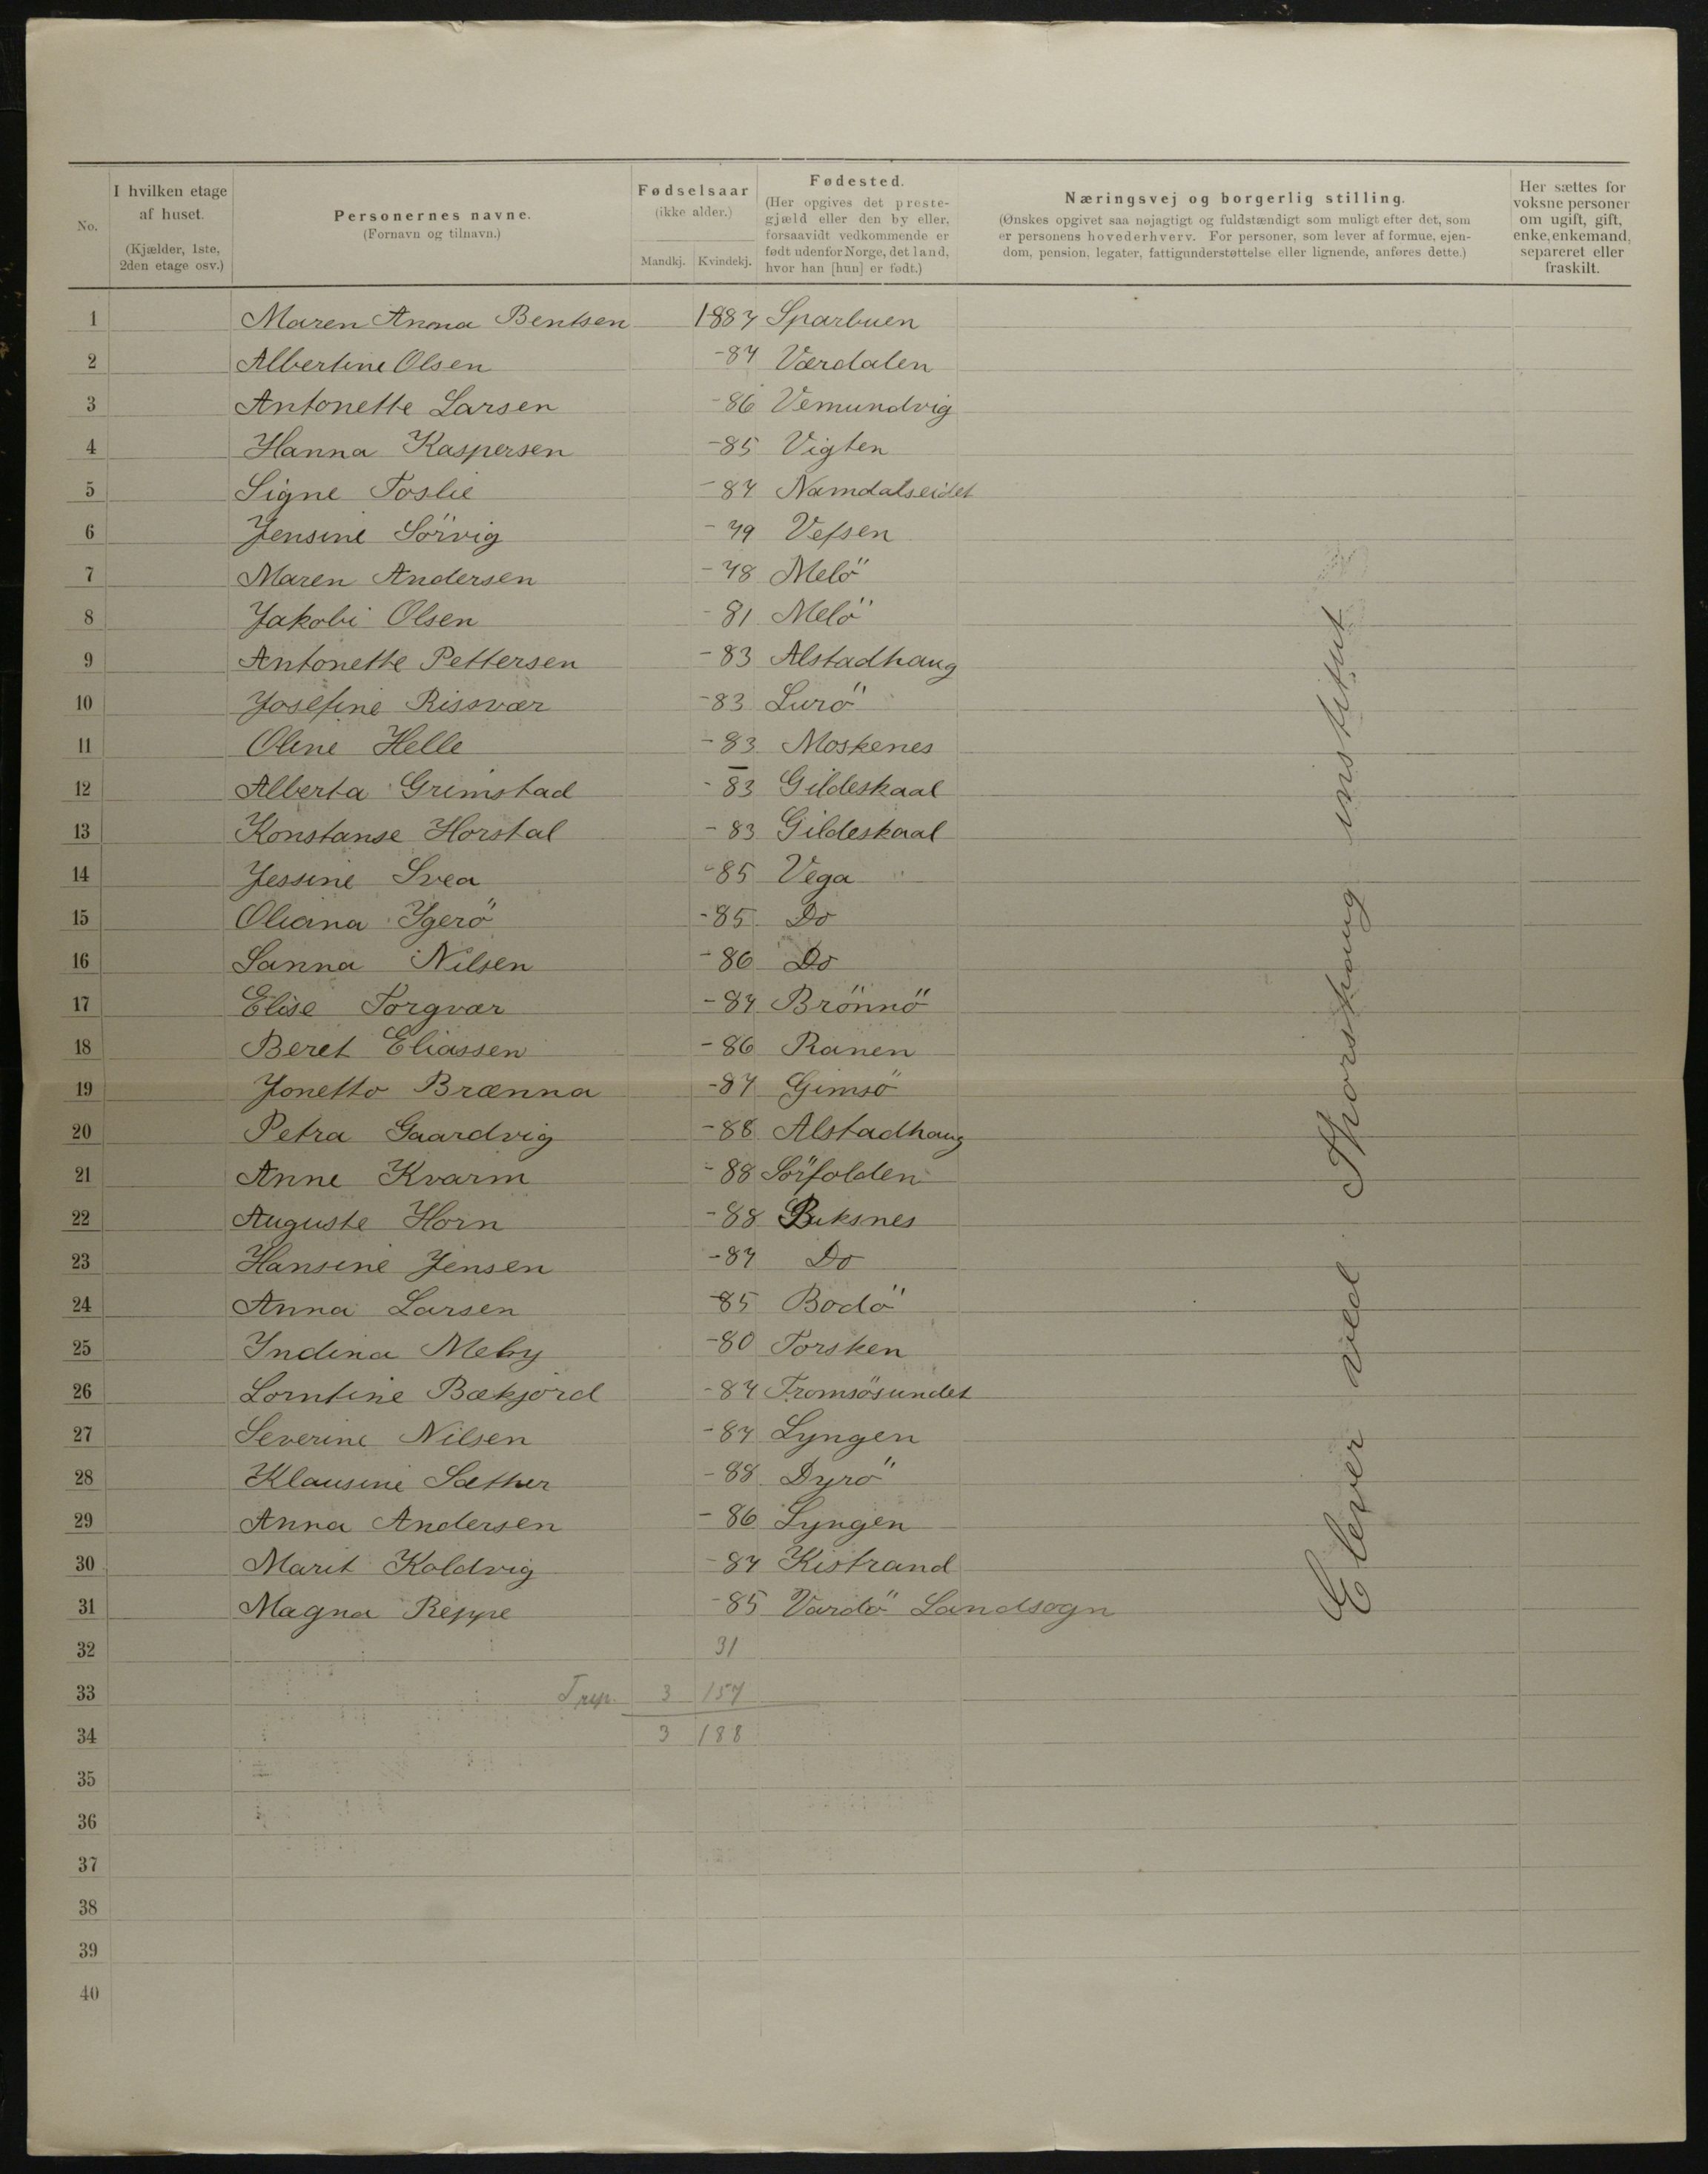 No.
I hvilken etage af huset.
(Kjælder, 1ste, 2den etage osv.)
Personernes navne.
(Fornavn og tilnavn.)
Fødselsaar
(ikke alder.)
Mandkj. Kvindekj.
Fødested.
(Her opgives det præstegjæld eller den by eller, forsaavidt vedkommende er født udenfor Norge, det land, hvor han [hun] er født.)
Næringsvej og borgerlig stilling.
(Ønskes opgivet saa nøjagtigt og fuldstændigt som muligt efter det, som er personens hovederhverv. For personer, som lever af formue, ejendom, pension, legater, fattigunderstøttelse eller lignende, anføres dette.)
Her sættes for voksne personer om ugift, gift, enke, enkemand, separeret eller fraskilt.
1 Maren Anna Bentsen 1887 Sparbuen
2 Albertine Olsen -87 Værdalen
3 Antonette Larsen -86 Vemundvig
4 Hanna Kaspersen -85 Vigten
5 Signe Foslie -87 Namdalseidet
6 Jensine Sörvig -79 Vefsen
7 Maren Andersen -78 Melö
8 Jakobi Olsen -81 Melö
9 Antonette Pettersen -83 Alstadhaug
10 Josefine Rissvær -83 Lurö
11 Oline Helle -83 Moskenes
12 Alberta Grimstad -83 Gildeskaal
13 Konstanse Horstal -83 Gildeskaal
14 Jessine Svea -85 Vega
15 Oliana Ygerö -85 Do
16 Sanna Nilsen -86 Do
17 Elise Torgvær -87 Brönnö
18 Beret Eliassen -86 Ranen
19 Jonetto Brænna -87 Gimsö
20 Petra Gaardvig -88 Alstadhaug
21 Anne Kvarm -88 Sörfolden
22 Auguste Horn -88 Buksnes
23 Hansine Jensen -87 Do
24 Anna Larsen -85 Bodö
25 Indina Meby -80 Torsken
26 Lorntine Bækjord -87 Tromsösundet
27 Severine Nilsen -87 Lyngen
28 Klausine Sæther -88 Dyrö
29 Anna Andersen -86 Lyngen
30 Marit Koldvig -87 Kistrand
31 Magna Reppe -85 Vardö Landsogn
32 31
33 3 157
34 3 188
35
36
37
38
39
40
Elever ved Thorshaug institut